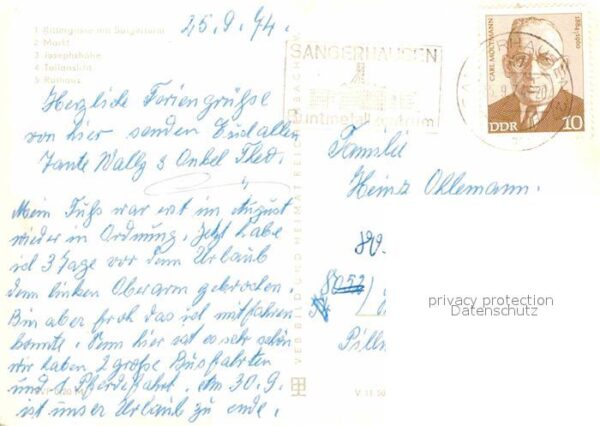 25.9.74.
1 Rittergasse mit Bürgerturm
2 Markt
3 Josephshöhe
4 Teilansicht
5 Rathaus
Herzliche Feriengrüße
von hier senden Euch allen
Tante Wally & Onkel Theo.
Mein Fuß war erst im August
wieder in Ordnung. Jetzt habe
ich 3 Tage vor dem Urlaub
den linken Oberarm gebrochen.
Bin aber froh das ich mitfahren
konnte. Denn hier ist es sehr schön
wir haben 2 große Busfahrten
und 1 Pferdefahrt. Am 30.9.
ist unser Urlaub zu ende.
VEB BILD UND HEIMAT REICHENBACH
V 11 50
SANGERHAUSEN
CARL MOLTMANN
1884-1960
DDR 10
Familie
Heinz Ohlemann.
8052
Pilln
privacy protection
Datenschutz